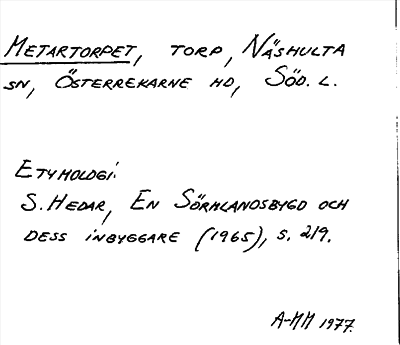 METARTORPET, TORP, NÄSHULTA
SN, ÖSTERREKARNE HD, SÖD. L.
ETYMOLOGI:
S. HEDAR, EN SÖRMLANDSBYGD OCH
DESS INBYGGARE (1965), S. 219.
A-MM 1977.